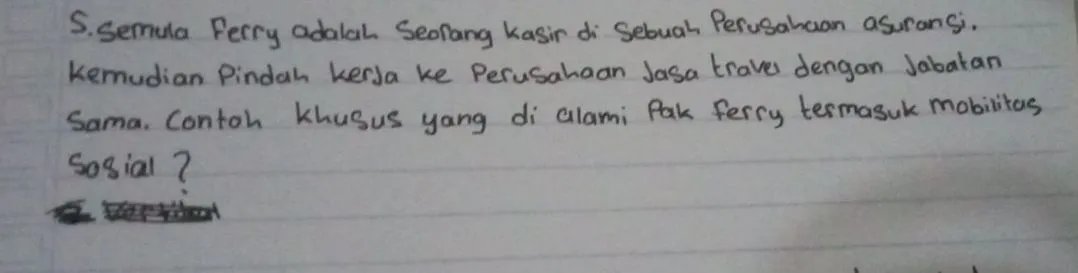 5. Semula Ferry adalah Seorang kasir di Sebuah Perusahaan asuransi.
Kemudian Pindah kerja ke Perusahaan Jasa travel dengan Jabatan
Sama. Contoh khusus yang di alami Pak ferry termasuk mobilitas
Sosial ?